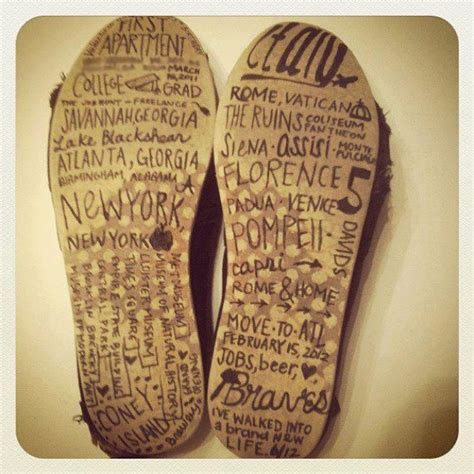 FIRST
APARTMENT
MARCH
18, 2011
COLLEGE GRAD
THE JOB HUNT - FREELANCE
SAVANNAH GEORGIA
Lake Blackshear
ATLANTA, GEORGIA
BIRMINGHAM, ALABAMA
NEW YORK,
NEW YORK
MET MUSEUM
MUSEUM OF NATURAL HISTORY
EMPIRE STATE BUILDING
CENTRAL PARK
CONEY
ISLAND
Italy
ROME, VATICAN
THE RUINS COLISEUM
PANTHEON
SIENA · ASSISI · MONTE
PULCIANO
FLORENCE
5 DAVIDS
PADUA · VENICE
POMPEII ·
capri
ROME & HOME
MOVE · TO · ATL
FEBRUARY 15, 2012
JOBS, beer,
Braves
I'VE WALKED INTO
a brand NEW
LIFE. 6/12